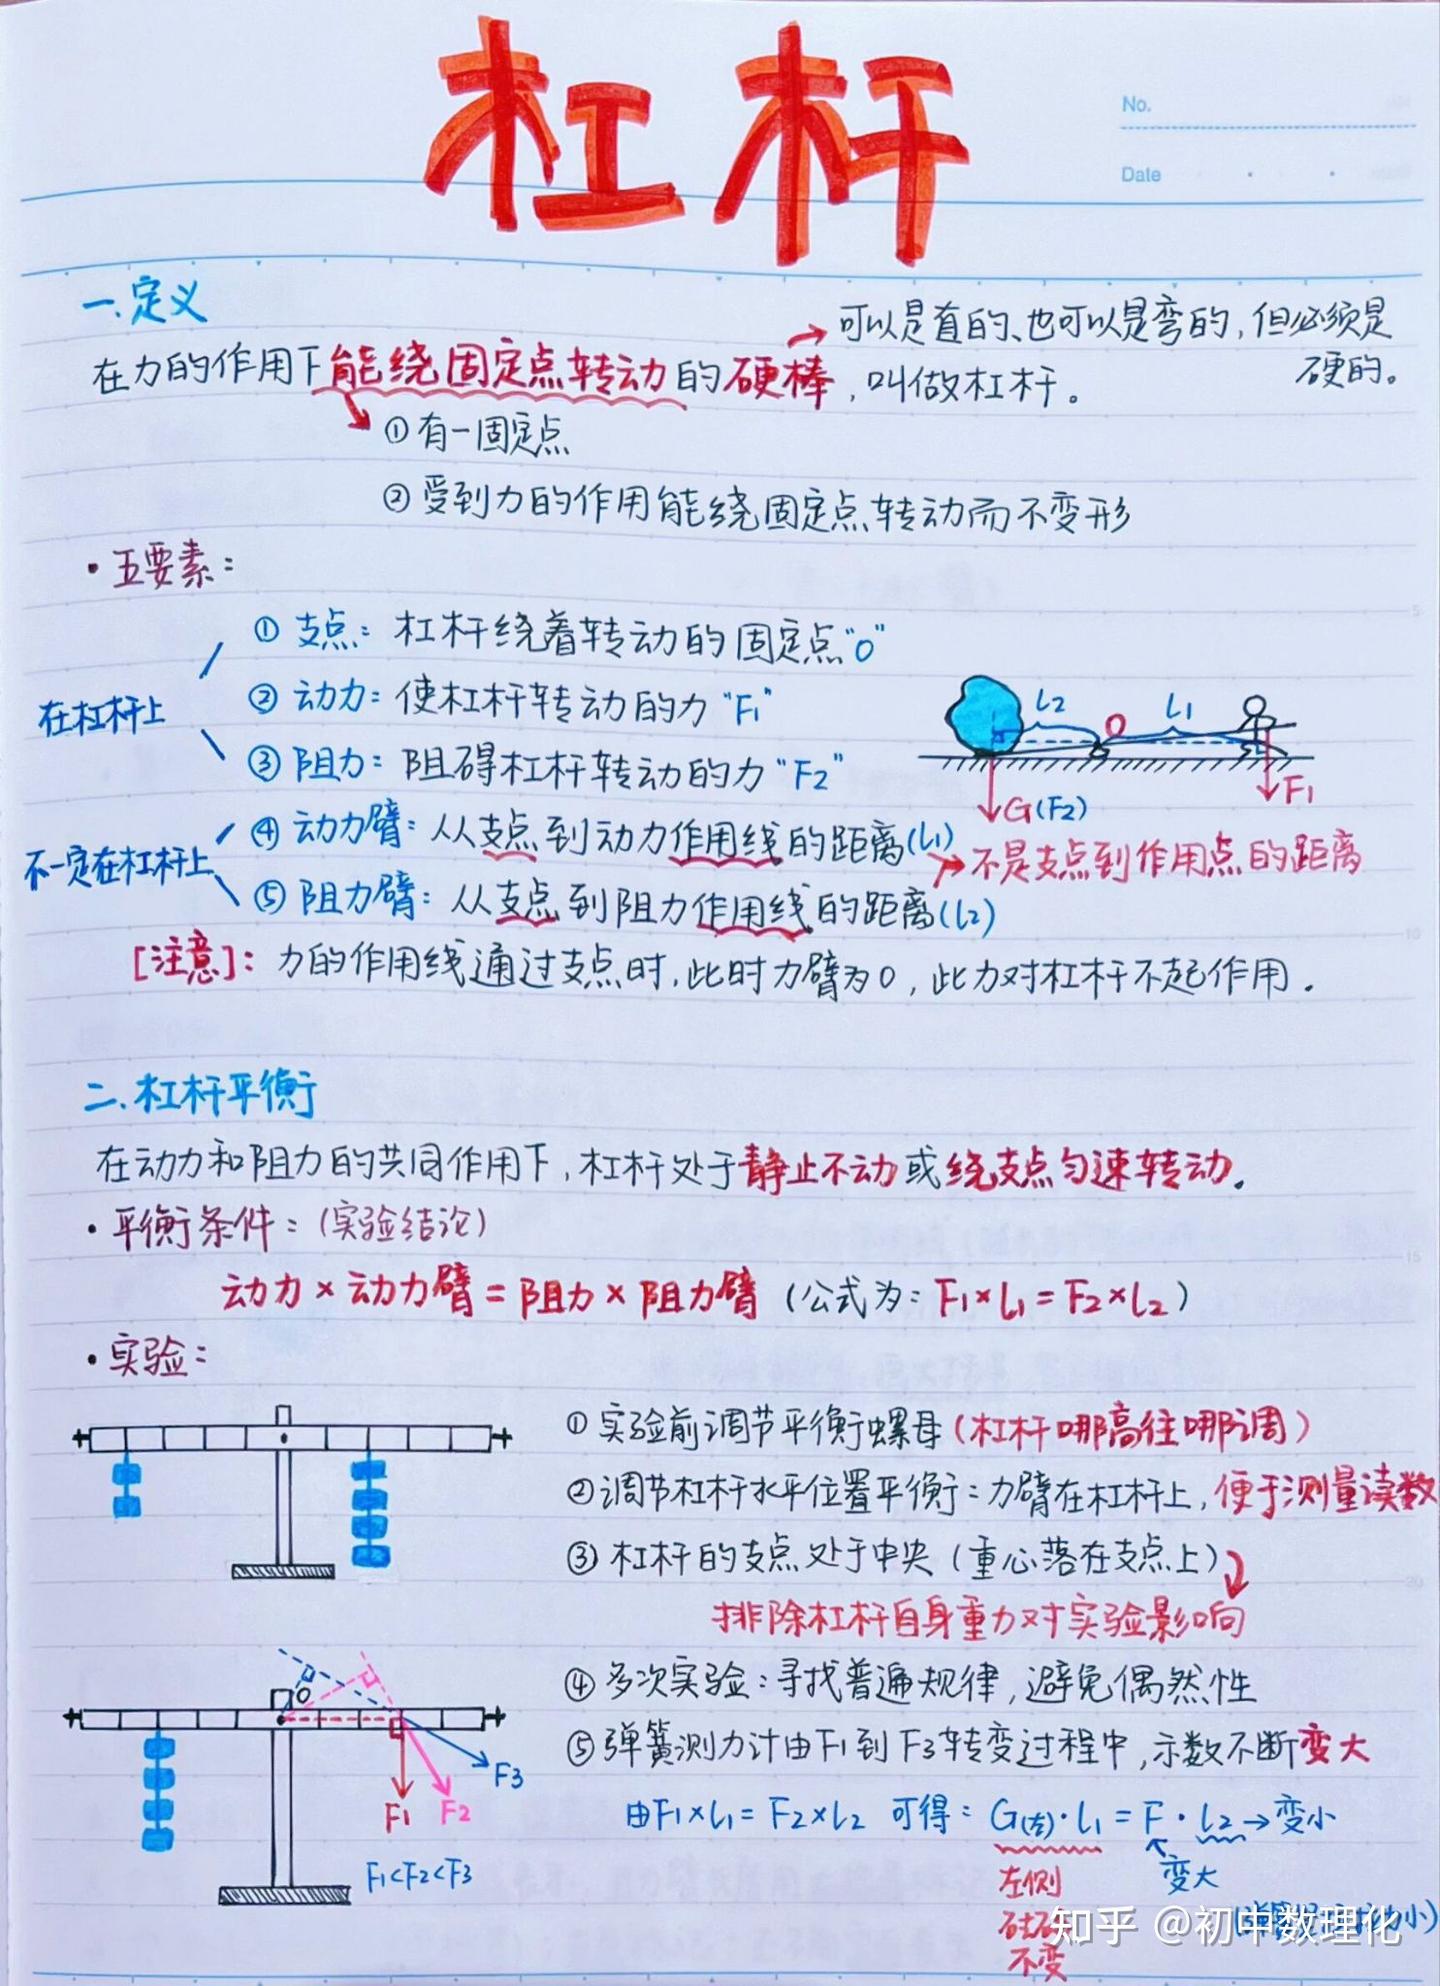 杠杆
No.
Date
一.定义
可以是直的、也可以是弯的,但必须是
硬的。
在力的作用下能绕固定点转动的硬棒,叫做杠杆。
①有一固定点
②受到力的作用能绕固定点转动而不变形
·五要素:
①支点:杠杆绕着转动的固定点"O"
②动力:使杠杆转动的力"F1"
在杠杆上
③阻力:阻碍杠杆转动的力"F2"
L2
O
L1
G(F2)
F1
④动力臂:从支点到动力作用线的距离(L1)
不是支点到作用点的距离
不一定在杠杆上
⑤阻力臂:从支点到阻力作用线的距离(L2)
[注意]:力的作用线通过支点时,此时力臂为0,此力对杠杆不起作用.
二.杠杆平衡
在动力和阻力的共同作用下,杠杆处于静止不动或绕支点匀速转动.
·平衡条件:(实验结论)
动力×动力臂=阻力×阻力臂(公式为:F1×L1=F2×L2)
·实验:
①实验前调节平衡螺母(杠杆哪高往哪调)
②调节杠杆水平位置平衡:力臂在杠杆上,便于测量读数
③杠杆的支点处于中央(重心落在支点上)
排除杠杆自身重力对实验影响
④多次实验:寻找普遍规律,避免偶然性
⑤弹簧测力计由F1到F3转变过程中,示数不断变大
O
F1
F2
F3
F1<F2<F3
由F1×L1=F2×L2 可得:G(左)·L1=F·L2→变小
变大
左侧
砝码
不变
知乎 @初中数理化